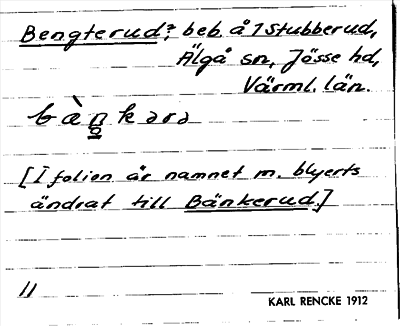 Bengterud? beb. å 1 Stubberud,
Älgå sn, Jösse hd,
Värml. län.
bàn̲kərə
2
[I folion är namnet m. blyerts
ändrat till Bänkerud.]
11
KARL RENCKE 1912